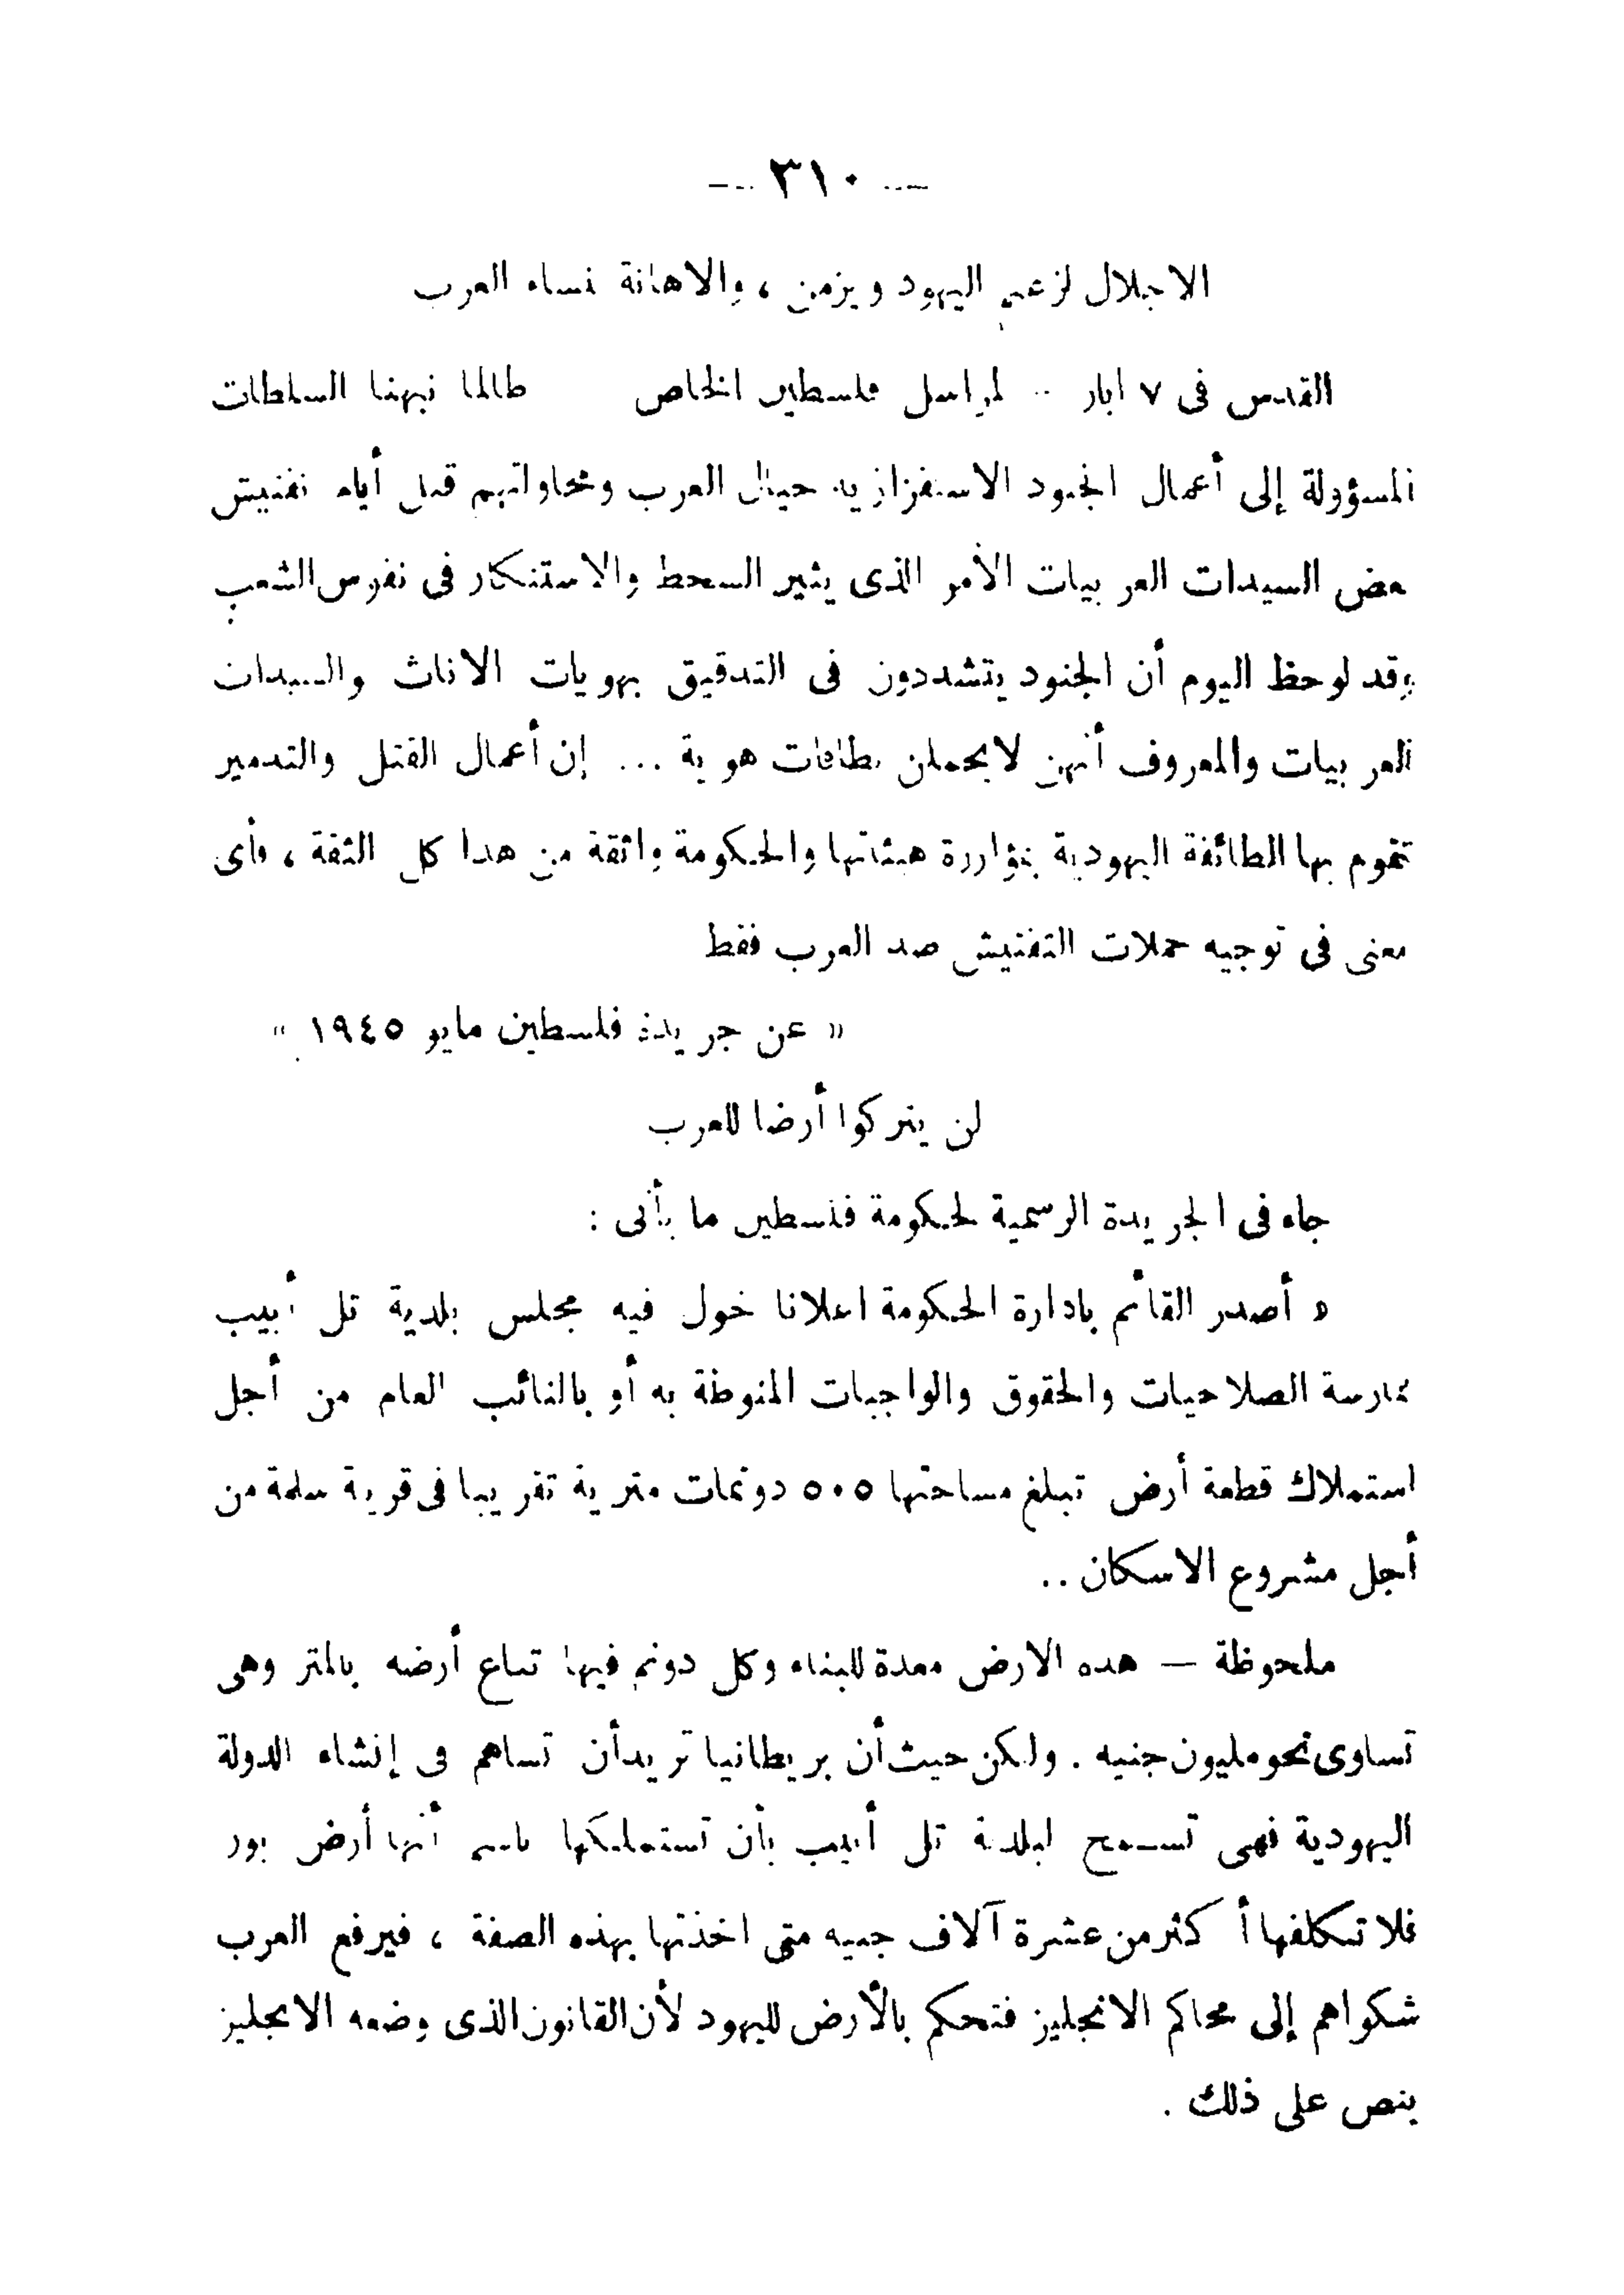 — ٣١٠ —
الاجلال لزعيم اليهود ويزمن ، والاهانة نساء العرب
القدس فى ٧ ابار - لمراسل فلسطين الخاص طالما نبهنا السلطات
المسؤولة إلى أعمال الجنود الاستفزازية حيال العرب ومحاولتهم قبل أيام تفتيش
بعض السيدات العربيات الأمر الذى يثير السخط والاستنكار فى نفوس الشعب
وقد لوحظ اليوم أن الجنود يتشددون فى التدقيق بهويات الاناث والسيدات
العربيات والمعروف أنهن لا يحملن بطاقات هوية ... إن أعمال القتل والتدمير
تقوم بها الطائفة اليهودية بمؤازرة هيئاتها والحكومة واثقة من هذا كل الثقة ، فأى
معنى فى توجيه حملات التفتيش ضد العرب فقط
« عن جريدة فلسطين مايو ١٩٤٥ »
لن يتركوا أرضا للعرب
جاء فى الجريدة الرسمية لحكومة فلسطين ما يأتى :
« أصدر القائم بادارة الحكومة اعلانا خول فيه مجلس بلدية تل أبيب
ممارسة الصلاحيات والحقوق والواجبات المنوطة به أو بالنائب العام من أجل
استملاك قطعة أرض تبلغ مساحتها ٥٠٥ دونمات مترية تقريبا فى قرية سلمة من
أجل مشروع الاسكان ..
ملحوظة — هذه الارض معدة للبناء وكل دونم فيها تباع أرضه بالمتر وهى
تساوى نحو مليون جنيه . ولكن حيث أن بريطانيا تريد أن تساهم فى إنشاء الدولة
اليهودية فهى تسمح لبلدية تل أبيب بأن تستملكها باسم أنها أرض بور
فلا تكلفها أكثر من عشرة آلاف جنيه متى اخذتها بهذه الصفة ، فيرفع العرب
شكواهم إلى محاكم الانجليز فتحكم بالأرض لليهود لأن القانون الذى وضعه الانجليز
ينص على ذلك .